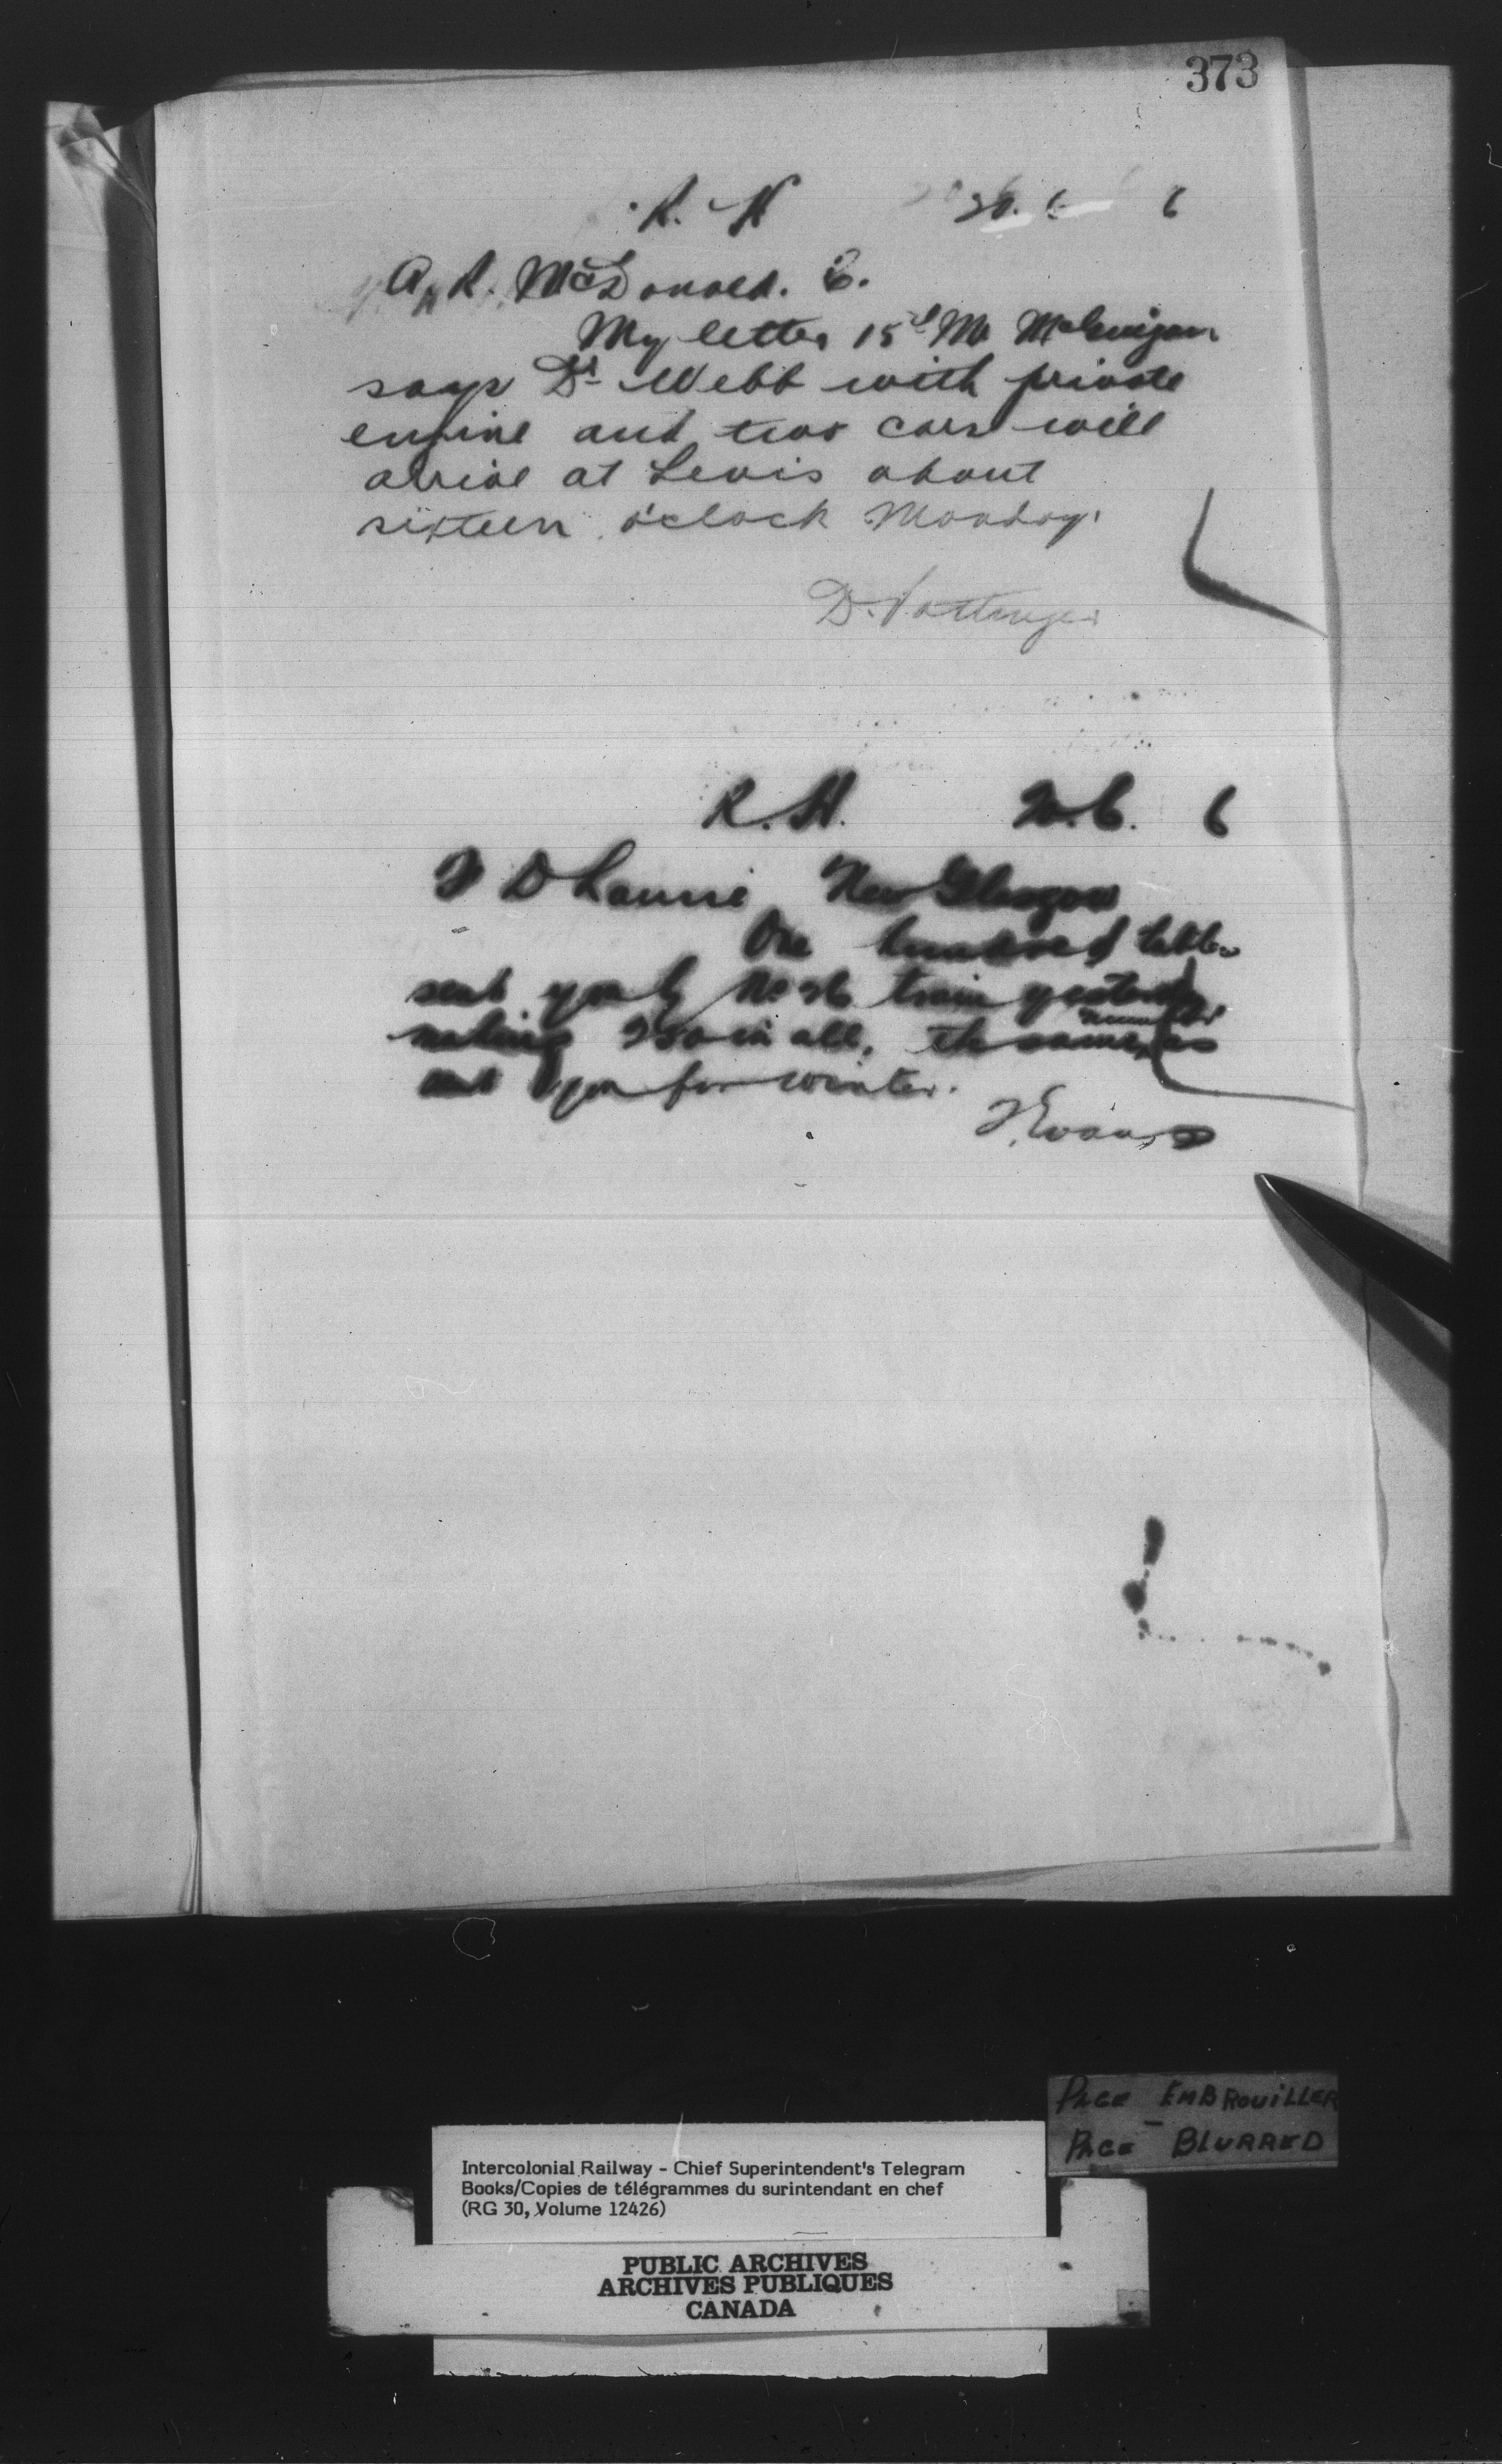 373
R. H 20. 6 6
A. R. McDonald. C.
My letter 15th Mr McGuigan
says Dr Webb with private
engine and two cars will
arrive at Levis about
sixteen o'clock Monday.
D. Pottinger
R. H. 20. 6. 6
D Laurie New Glasgow
One hundred tables
sent you by No 26 train yesterday,
number
making 250 in all, the same as
sent you for winter.
Evans
PAGE EMBROUILLER
PAGE BLURRED
Intercolonial Railway - Chief Superintendent's Telegram
Books/Copies de télégrammes du surintendant en chef
(RG 30, Volume 12426)
PUBLIC ARCHIVES
ARCHIVES PUBLIQUES
CANADA